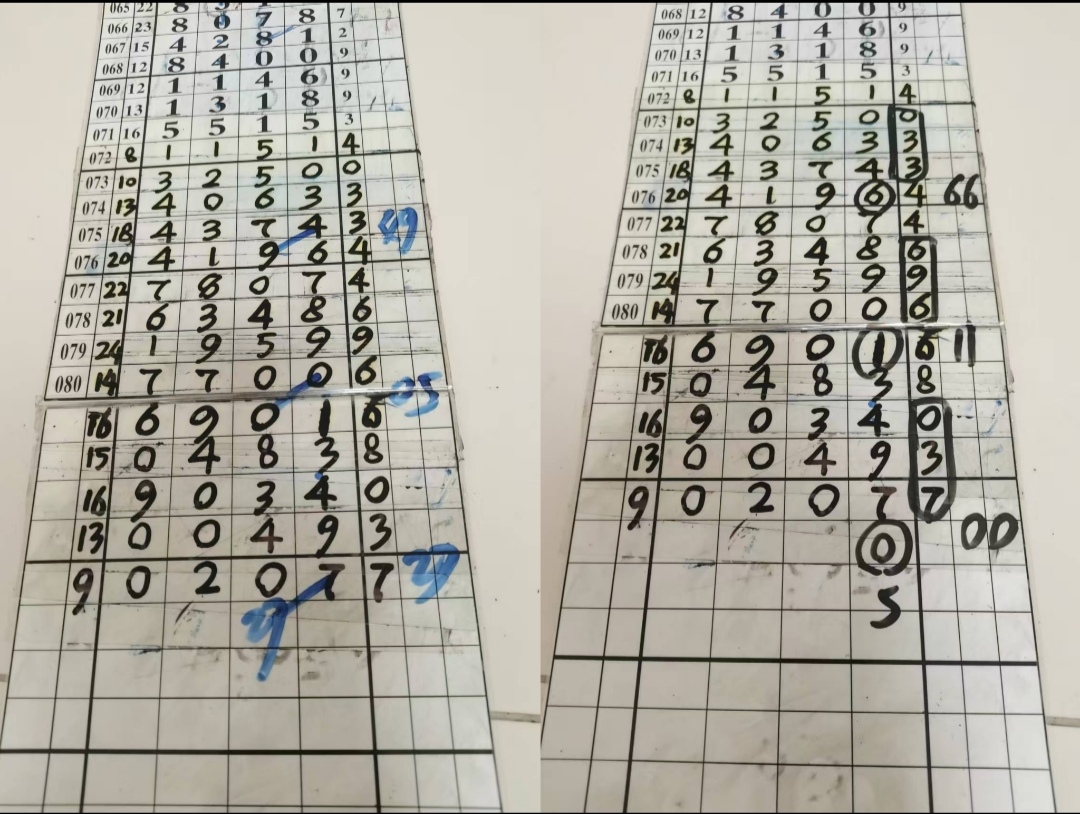 065 22 8
066 23 8 0 7 8 7
067 15 4 2 8 1 2
068 12 8 4 0 0 9
069 12 1 1 4 6 9
070 13 1 3 1 8 9
071 16 5 5 1 5 3
072 8 1 1 5 1 4
073 10 3 2 5 0 0
074 13 4 0 6 3 3
075 18 4 3 7 4 3 49
076 20 4 1 9 6 4
077 22 7 8 0 7 4
078 21 6 3 4 8 6
079 24 1 9 5 9 9
080 14 7 7 0 0 6 05
16 6 9 0 1 6
15 0 4 8 3 8
16 9 0 3 4 0
13 0 0 4 9 3
9 0 2 0 7 7 27
068 12 8 4 0 0 9
069 12 1 1 4 6 9
070 13 1 3 1 8 9
071 16 5 5 1 5 3
072 8 1 1 5 1 4
073 10 3 2 5 0 0
074 13 4 0 6 3 3
075 18 4 3 7 4 3
076 20 4 1 9 6 4 66
077 22 7 8 0 7 4
078 21 6 3 4 8 6
079 24 1 9 5 9 9
080 14 7 7 0 0 6
16 6 9 0 1 6 11
15 0 4 8 3 8
16 9 0 3 4 0
13 0 0 4 9 3
9 0 2 0 7 7
0 00
5